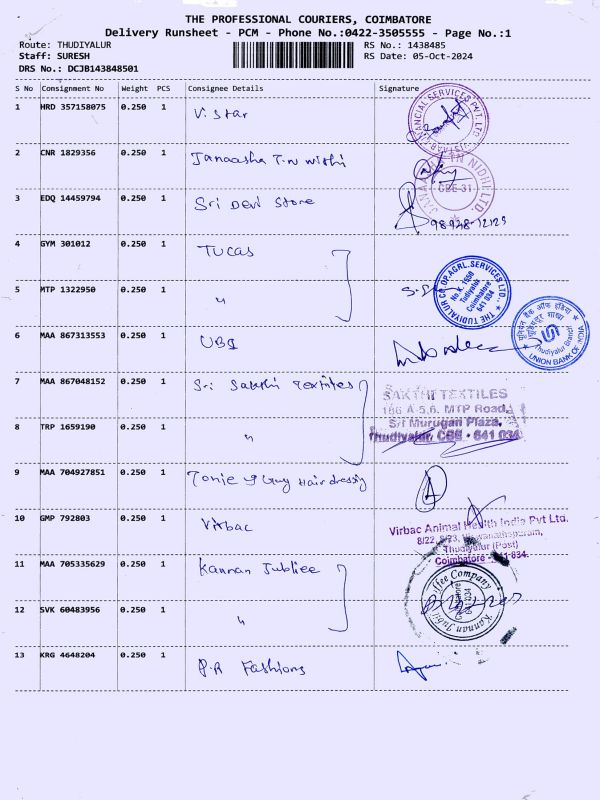 THE PROFESSIONAL COURIERS, COIMBATORE
Delivery Runsheet - PCM - Phone No.:0422-3505555 - Page No.:1
Route: THUDIYALUR
RS No.: 1438485
Staff: SURESH
RS Date: 05-Oct-2024
DRS No.: DCJB143848501
S No Consignment No Weight PCS Consignee Details Signature
1 HRD 357158075 0.250 1 V. Star
2 CNR 1829356 0.250 1 Janaasha T.N Nidhi
CBE-31
3 EDQ 14459794 0.250 1 Sri Devi Store
4 GYM 301012 0.250 1 TUCAS
THE TUDIYALUR CO.OP.AGRL.SERVICES LTD.,
No.K. 1550
Tudiyalur
Coimbatore
641 034
5 MTP 1322950 0.250 1 "
6 MAA 867313553 0.250 1 UBI
Thudiyalur Branch
UNION BANK OF INDIA
7 MAA 867048152 0.250 1 Sri Sakthi Textiles
SAKTHI TEXTILES
186 A-5,6. MTP Road,
Sri Murugan Plaza,
Thudiyalur, CBE - 641 034
8 TRP 1659190 0.250 1 "
9 MAA 704927851 0.250 1 Tonie & Guy Hair dressing
10 GMP 792803 0.250 1 Virbac
Virbac Animal Health India Pvt Ltd.
Thudiyalur (Post)
Coimbatore - 641 034.
11 MAA 705335629 0.250 1 Kannan Jubliee
12 SVK 60483956 0.250 1 "
13 KRG 4648204 0.250 1 P.R Fashions